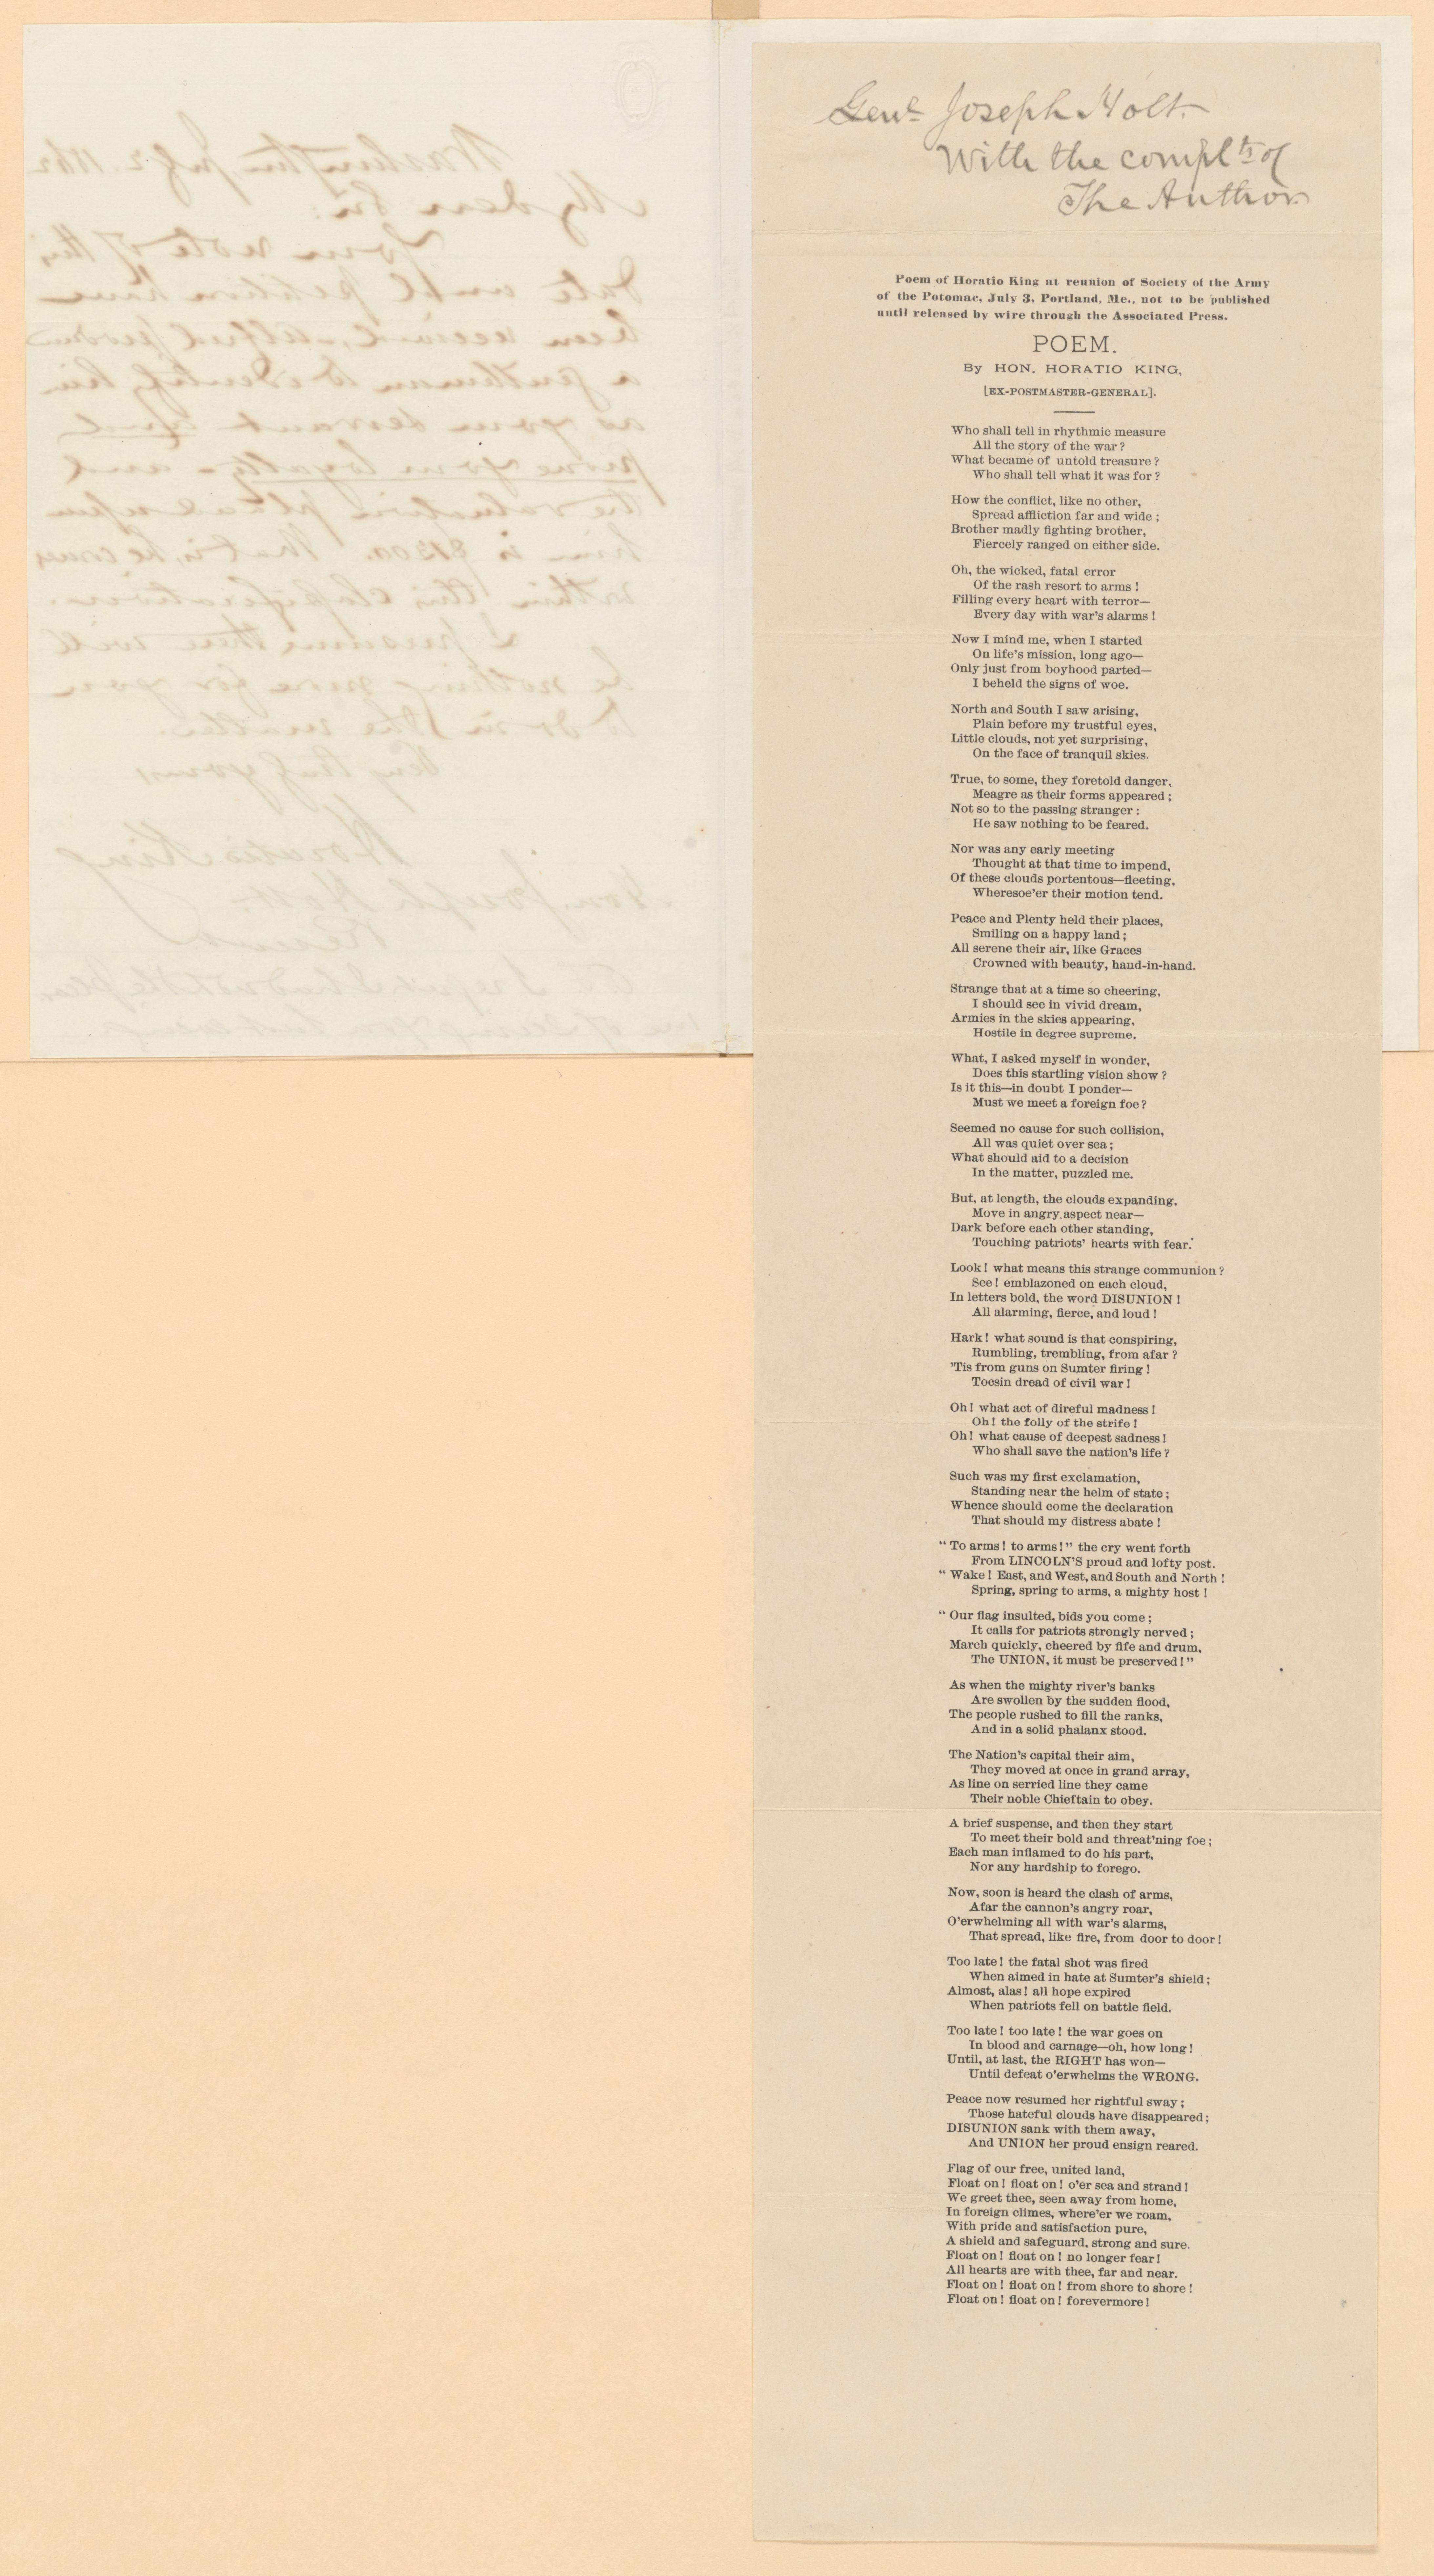 Washington July 2. 1862
My dear Sir:
Your note of this
date petition have
been received. Alfred
a gentleman to identify him
as your servant and
prove your loyalty and
the valuation placed upon
him is $1300. That is, he comes
within this classification.
I presume there will
be nothing more for you
to do in the matter.
Very truly yours,
Horatio King
Hon. Joseph Holt.
I regret I had not the pleas
of seeing
Genl. Joseph Holt.
With the complts of
The Author.
Poem of Horatio King at reunion of Society of the Army
of the Potomac, July 3, Portland, Me., not to be published
until released by wire through the Associated Press.
POEM.
By HON. HORATIO KING,
[EX-POSTMASTER-GENERAL].
Who shall tell in rhythmic measure
All the story of the war?
What became of untold treasure?
Who shall tell what it was for?
How the conflict, like no other,
Spread affliction far and wide;
Brother madly fighting brother,
Fiercely ranged on either side.
Oh, the wicked, fatal error
Of the rash resort to arms!
Filling every heart with terror—
Every day with war's alarms!
Now I mind me, when I started
On life's mission, long ago—
Only just from boyhood parted—
I beheld the signs of woe.
North and South I saw arising,
Plain before my trustful eyes,
Little clouds, not yet surprising,
On the face of tranquil skies.
True, to some, they foretold danger,
Meagre as their forms appeared;
Not so to the passing stranger:
He saw nothing to be feared.
Nor was any early meeting
Thought at that time to impend,
Of these clouds portentous—fleeting,
Wheresoe'er their motion tend.
Peace and Plenty held their places,
Smiling on a happy land;
All serene their air, like Graces
Crowned with beauty, hand-in-hand.
Strange that at a time so cheering,
I should see in vivid dream,
Armies in the skies appearing,
Hostile in degree supreme.
What, I asked myself in wonder,
Does this startling vision show?
Is it this—in doubt I ponder—
Must we meet a foreign foe?
Seemed no cause for such collision,
All was quiet over sea;
What should aid to a decision
In the matter, puzzled me.
But, at length, the clouds expanding,
Move in angry aspect near—
Dark before each other standing,
Touching patriots' hearts with fear.
Look! what means this strange communion?
See! emblazoned on each cloud,
In letters bold, the word DISUNION!
All alarming, fierce, and loud!
Hark! what sound is that conspiring,
Rumbling, trembling, from afar?
'Tis from guns on Sumter firing!
Tocsin dread of civil war!
Oh! what act of direful madness!
Oh! the folly of the strife!
Oh! what cause of deepest sadness!
Who shall save the nation's life?
Such was my first exclamation,
Standing near the helm of state;
Whence should come the declaration
That should my distress abate!
"To arms! to arms!" the cry went forth
From LINCOLN'S proud and lofty post.
"Wake! East, and West, and South and North!
Spring, spring to arms, a mighty host!
"Our flag insulted, bids you come;
It calls for patriots strongly nerved;
March quickly, cheered by fife and drum,
The UNION, it must be preserved!"
As when the mighty river's banks
Are swollen by the sudden flood,
The people rushed to fill the ranks,
And in a solid phalanx stood.
The Nation's capital their aim,
They moved at once in grand array,
As line on serried line they came
Their noble Chieftain to obey.
A brief suspense, and then they start
To meet their bold and threat'ning foe;
Each man inflamed to do his part,
Nor any hardship to forego.
Now, soon is heard the clash of arms,
Afar the cannon's angry roar,
O'erwhelming all with war's alarms,
That spread, like fire, from door to door!
Too late! the fatal shot was fired
When aimed in hate at Sumter's shield;
Almost, alas! all hope expired
When patriots fell on battle field.
Too late! too late! the war goes on
In blood and carnage—oh, how long!
Until, at last, the RIGHT has won—
Until defeat o'erwhelms the WRONG.
Peace now resumed her rightful sway;
Those hateful clouds have disappeared;
DISUNION sank with them away,
And UNION her proud ensign reared.
Flag of our free, united land,
Float on! float on! o'er sea and strand!
We greet thee, seen away from home,
In foreign climes, where'er we roam,
With pride and satisfaction pure,
A shield and safeguard, strong and sure.
Float on! float on! no longer fear!
All hearts are with thee, far and near.
Float on! float on! from shore to shore!
Float on! float on! forevermore!